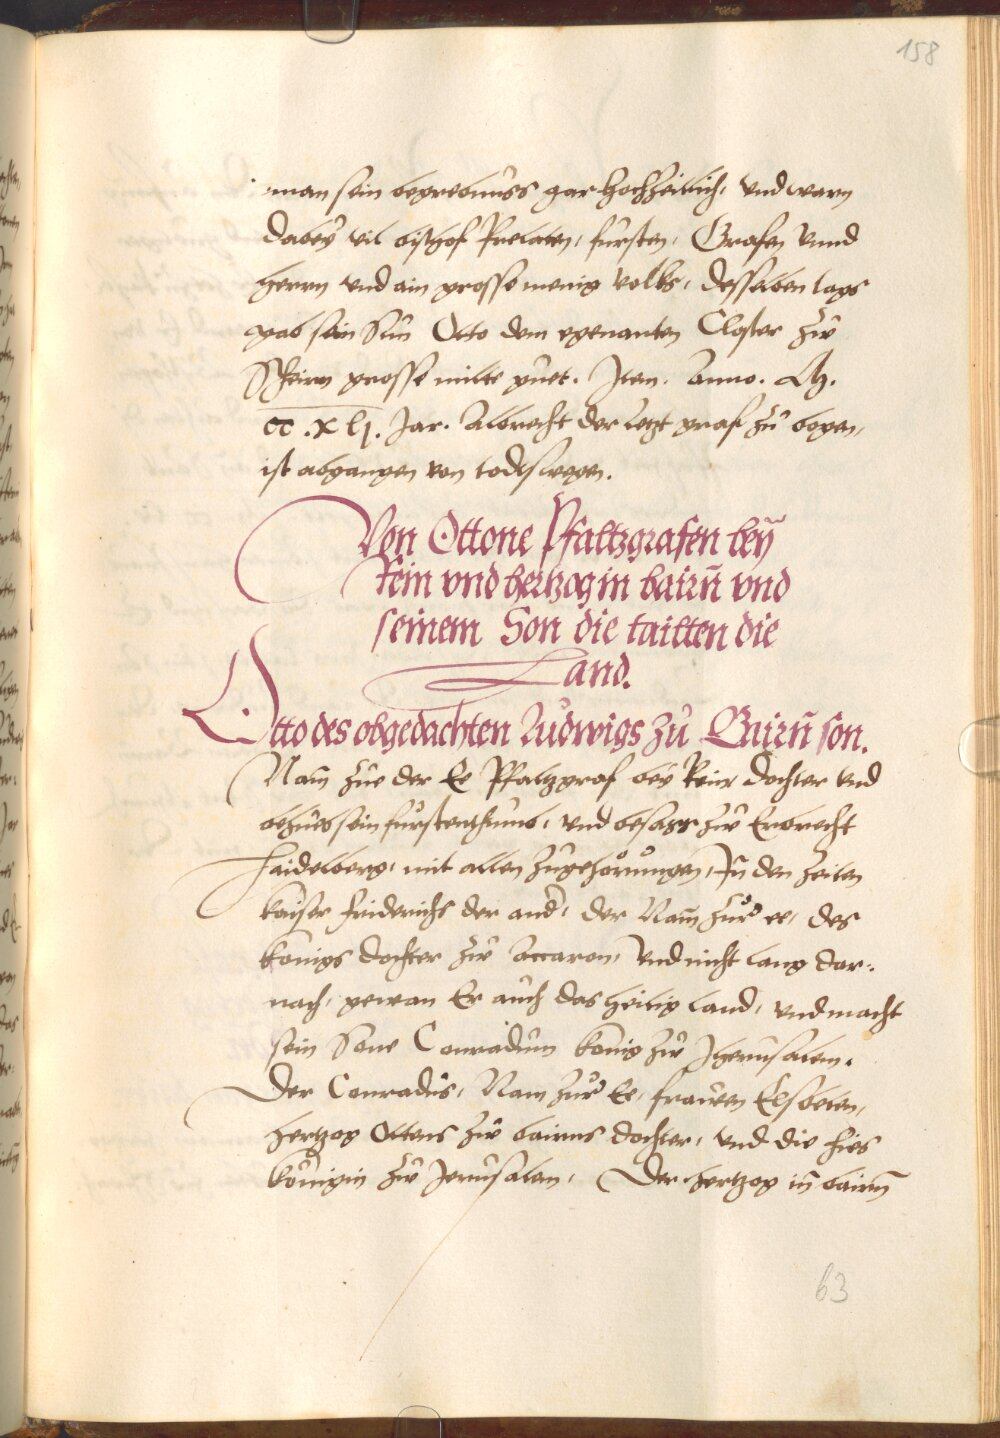 158
man sein begrebnuss gar hochzeitlich, vnd warn
dabeÿ vil bischof Prelaten, fürsten, Grafen vnnd
herrn vnd ain grosse menig volks, desselben tags
gab sein Sün Otto dem egenanten Closter zw̄
Scheirn grosse milte guet. Item. anno. M.
CC.xlj. Jar. Albrecht der letzt graf zů bogen,
ist abgangen von todtswegen.
Von Ottone Pfaltzgrafen beÿ
Rein vnd hertzog in bairn̄ vnd
seinem Son die tailten die
Land.
Otto des obgedachten Ludwigs zů Bairn̄ son.
Nam̄ zůe der Ee Pfaltzgraf beÿ Rein dochter vnd
behües sein fürstenthumb, vnd besass zw̄ Erbrecht
haidelberg, mit allen zůgehörůngen, In̄ den zeiten
kaiser friderichs der and', der Nam̄ zůr ee, des
konigs dochter zw̄ Accaron, vnd nicht lang dar¬
nach, gewan Er auch das heilig land, vnd macht
sein Sone Conradum konig zw̄ Jherusalem.
Der Conradůs, Nam zůr Ee, frawen Elsbeten,
hertzog Ottens zw̄ bairns dochter, vnd die hies
königin zw̄ Jerůsalem, Der hertzog in̄ bairn̄
63